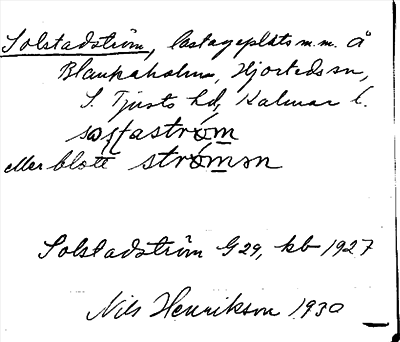 Solstadström, lastageplats m.m. å
Blankaholm, Hjorteds sn,
S. Tjusts hd, Kalmar l.
eller blott strömən
Solstadström G29, kb 1927
Nils Henrikson 1930